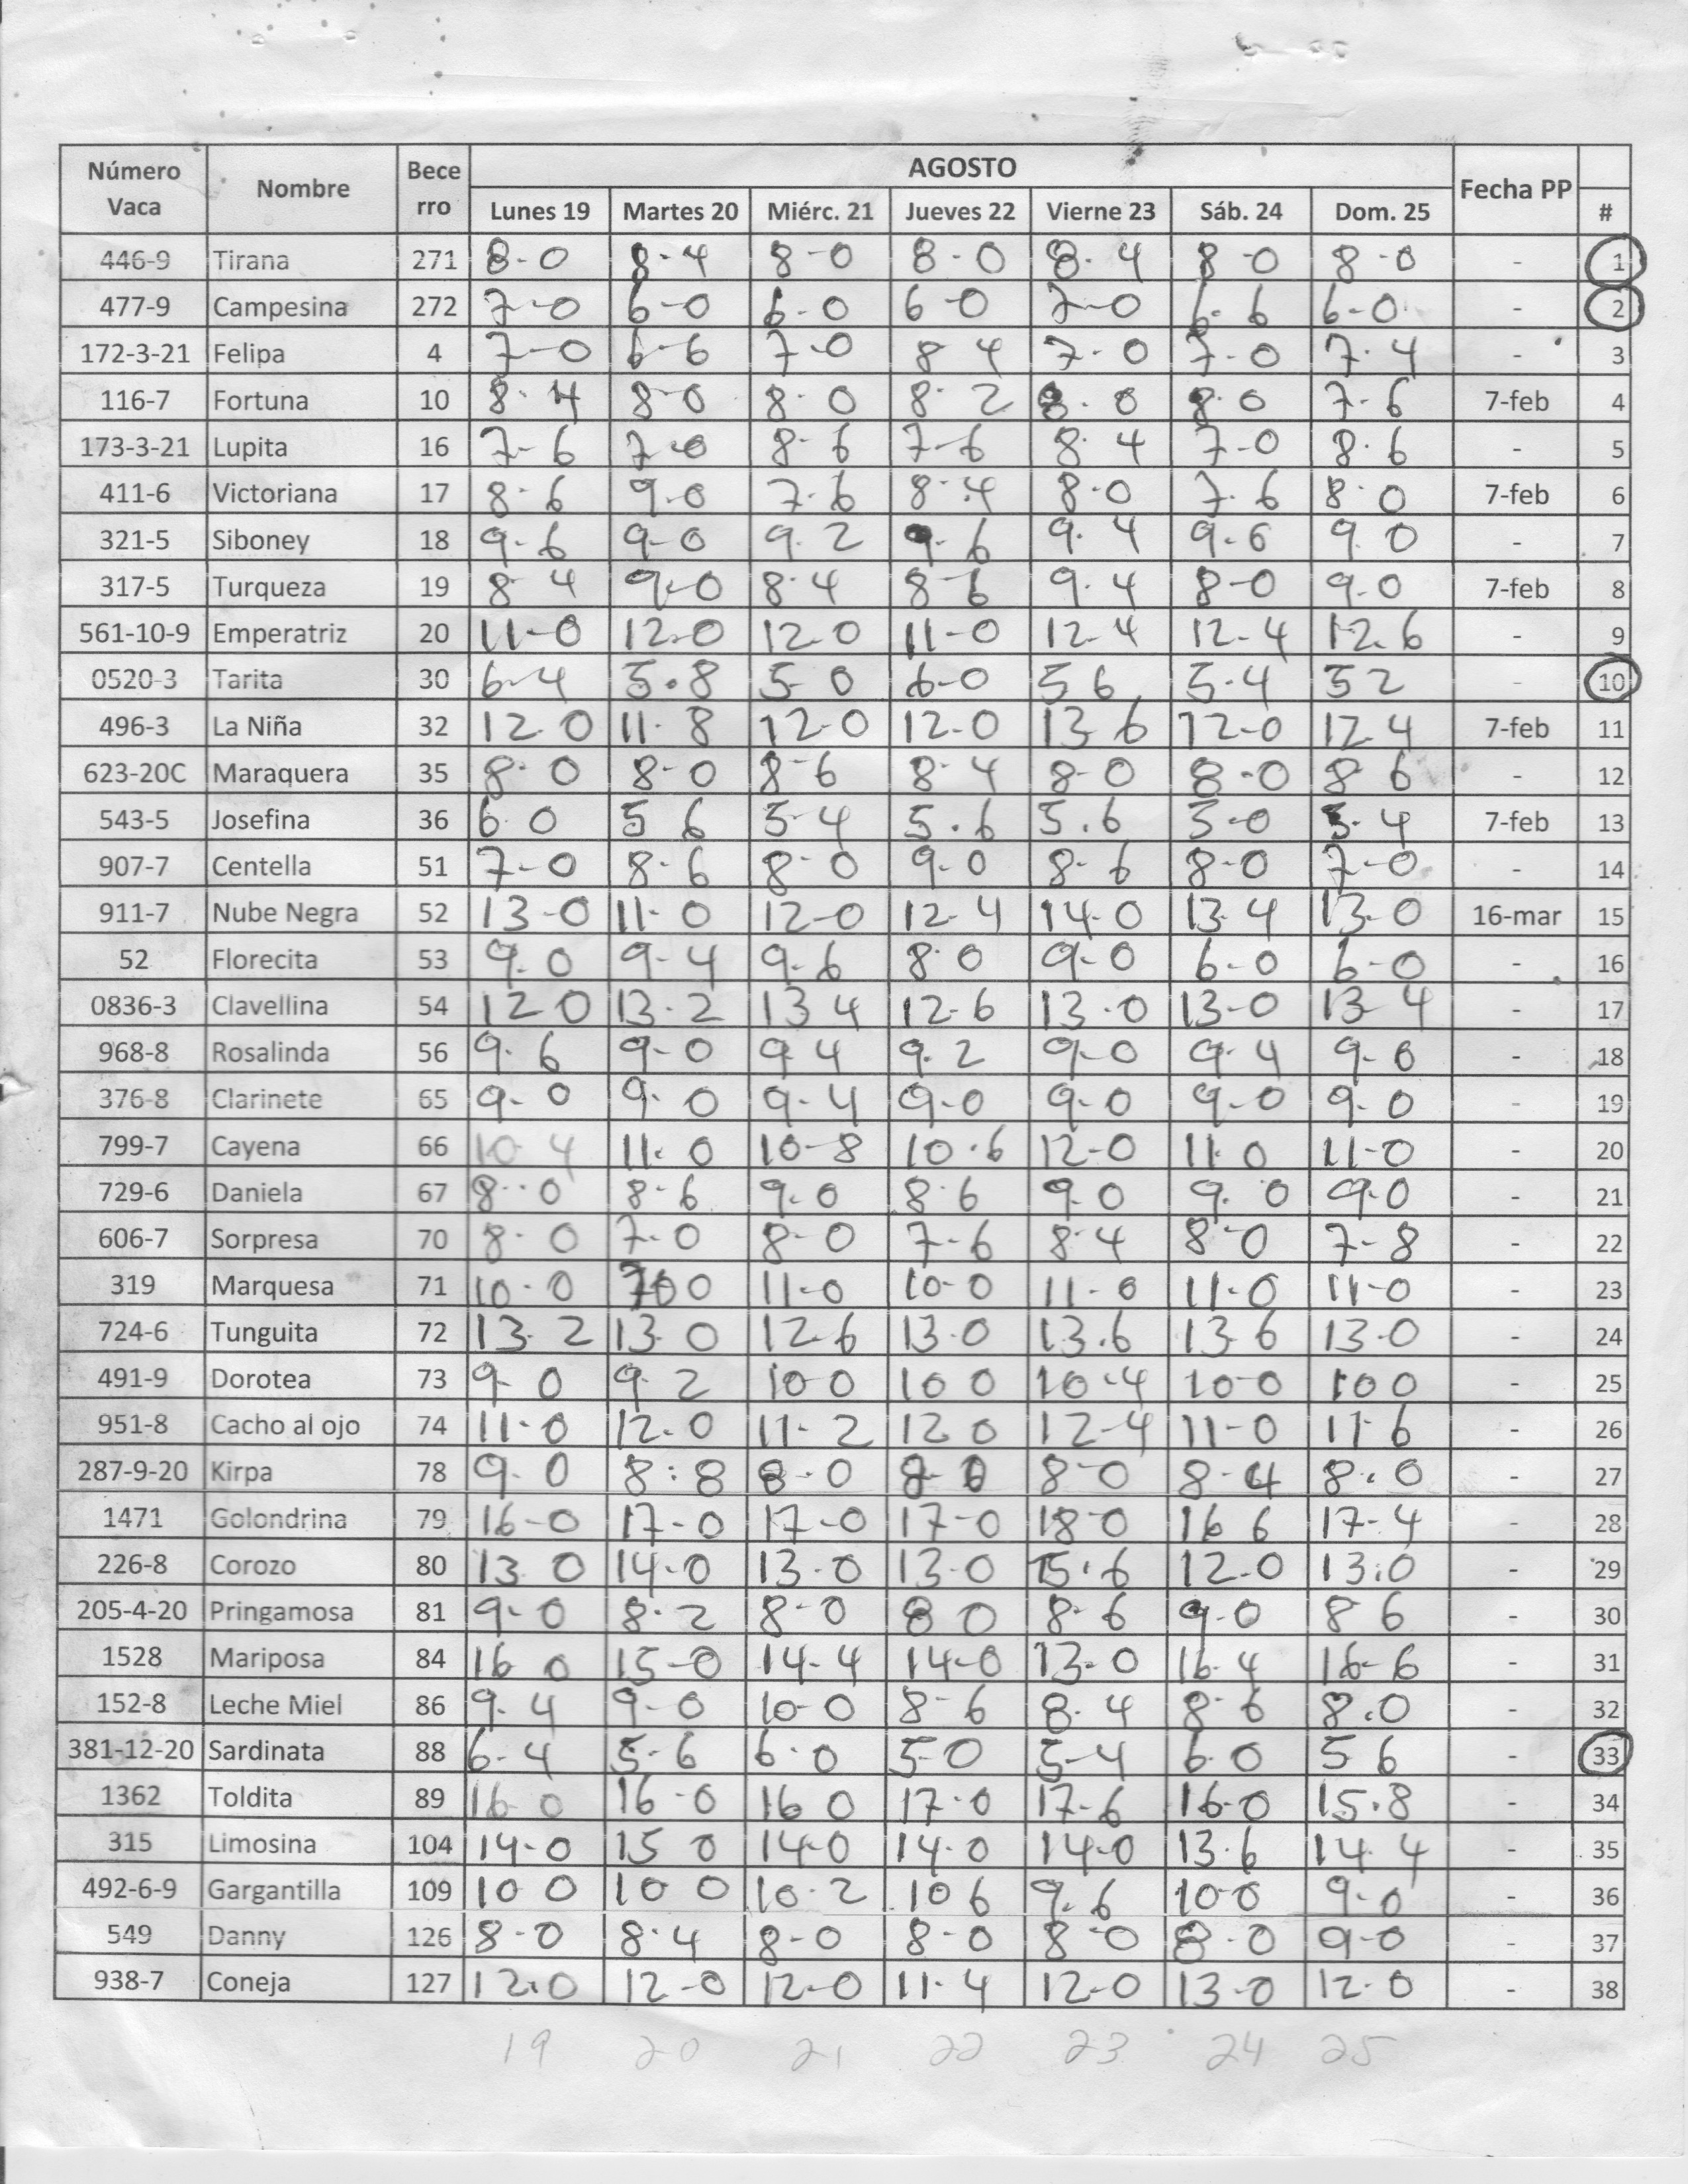 Número Vaca Nombre Bece rro AGOSTO Fecha PP #
Lunes 19 Martes 20 Miérc. 21 Jueves 22 Vierne 23 Sáb. 24 Dom. 25
446-9 Tirana 271 8-0 8-4 8-0 8-0 8-4 8-0 8-0 - 1
477-9 Campesina 272 7-0 6-0 6-0 6-0 7-0 6-6 6-0 - 2
172-3-21 Felipa 4 7-0 6-6 7-0 8 4 7-0 7-0 7-4 - 3
116-7 Fortuna 10 8-4 8-0 8-0 8-2 8-0 8-0 7-6 7-feb 4
173-3-21 Lupita 16 7-6 7-0 8-6 7-6 8-4 7-0 8-6 - 5
411-6 Victoriana 17 8-6 9-0 7-6 8-4 8-0 7-6 8-0 7-feb 6
321-5 Siboney 18 9-6 9-0 9.2 9-6 9.4 9-6 9.0 - 7
317-5 Turqueza 19 8-4 9-0 8-4 8-6 9.4 8-0 9.0 7-feb 8
561-10-9 Emperatriz 20 11-0 12-0 12-0 11-0 12-4 12-4 12.6 - 9
0520-3 Tarita 30 6-4 5.8 5-0 6-0 5 6 5.4 5 2 - 10
496-3 La Niña 32 12.0 11-8 12-0 12-0 13 6 12-0 12 4 7-feb 11
623-20C Maraquera 35 8-0 8-0 8-6 8-4 8-0 8-0 8 6 - 12
543-5 Josefina 36 6 0 5 6 5-4 5.6 5.6 5-0 5-4 7-feb 13
907-7 Centella 51 7-0 8-6 8-0 9-0 8-6 8-0 7-0 - 14
911-7 Nube Negra 52 13-0 11-0 12-0 12-4 14-0 13-4 13-0 16-mar 15
52 Florecita 53 9.0 9-4 9-6 8-0 9-0 6-0 6-0 - 16
0836-3 Clavellina 54 12 0 13-2 13 4 12-6 13-0 13-0 13-4 - 17
968-8 Rosalinda 56 9-6 9-0 9 4 9.2 9-0 9-4 9-0 - 18
376-8 Clarinete 65 9-0 9-0 9-4 9-0 9-0 9-0 9-0 - 19
799-7 Cayena 66 10 4 11-0 10-8 10-6 12-0 11-0 11-0 - 20
729-6 Daniela 67 8-0 8-6 9-0 8-6 9.0 9-0 9-0 - 21
606-7 Sorpresa 70 8-0 7-0 8-0 7-6 8-4 8-0 7-8 - 22
319 Marquesa 71 10-0 10 0 11-0 10-0 11-0 11-0 11-0 - 23
724-6 Tunguita 72 13-2 13 0 12-6 13-0 13.6 13 6 13-0 - 24
491-9 Dorotea 73 9-0 9 2 10 0 10 0 10-4 10-0 10 0 - 25
951-8 Cacho al ojo 74 11-0 12-0 11-2 12 0 12-4 11-0 11-6 - 26
287-9-20 Kirpa 78 9-0 8-8 8-0 8-0 8-0 8-4 8-0 - 27
1471 Golondrina 79 16-0 17-0 17-0 17-0 18-0 16 6 17-4 - 28
226-8 Corozo 80 13 0 14-0 13-0 13-0 15-6 12-0 13.0 - 29
205-4-20 Pringamosa 81 9-0 8-2 8-0 8 0 8-6 9-0 8 6 - 30
1528 Mariposa 84 16 0 15-0 14-4 14-0 13-0 16-4 16-6 - 31
152-8 Leche Miel 86 9-4 9-0 10-0 8-6 8-4 8-6 8.0 - 32
381-12-20 Sardinata 88 6-4 5-6 6-0 5-0 5-4 6-0 5 6 - 33
1362 Toldita 89 16 0 16-0 16 0 17-0 17-6 16-0 15.8 - 34
315 Limosina 104 14-0 15 0 14-0 14-0 14-0 13-6 14 4 - 35
492-6-9 Gargantilla 109 10 0 10 0 10-2 10 6 9-6 10-0 9-0 - 36
549 Danny 126 8-0 8-4 8-0 8-0 8-0 8-0 9-0 - 37
938-7 Coneja 127 12.0 12-0 12-0 11-4 12-0 13-0 12-0 - 38
19 20 21 22 23 24 25